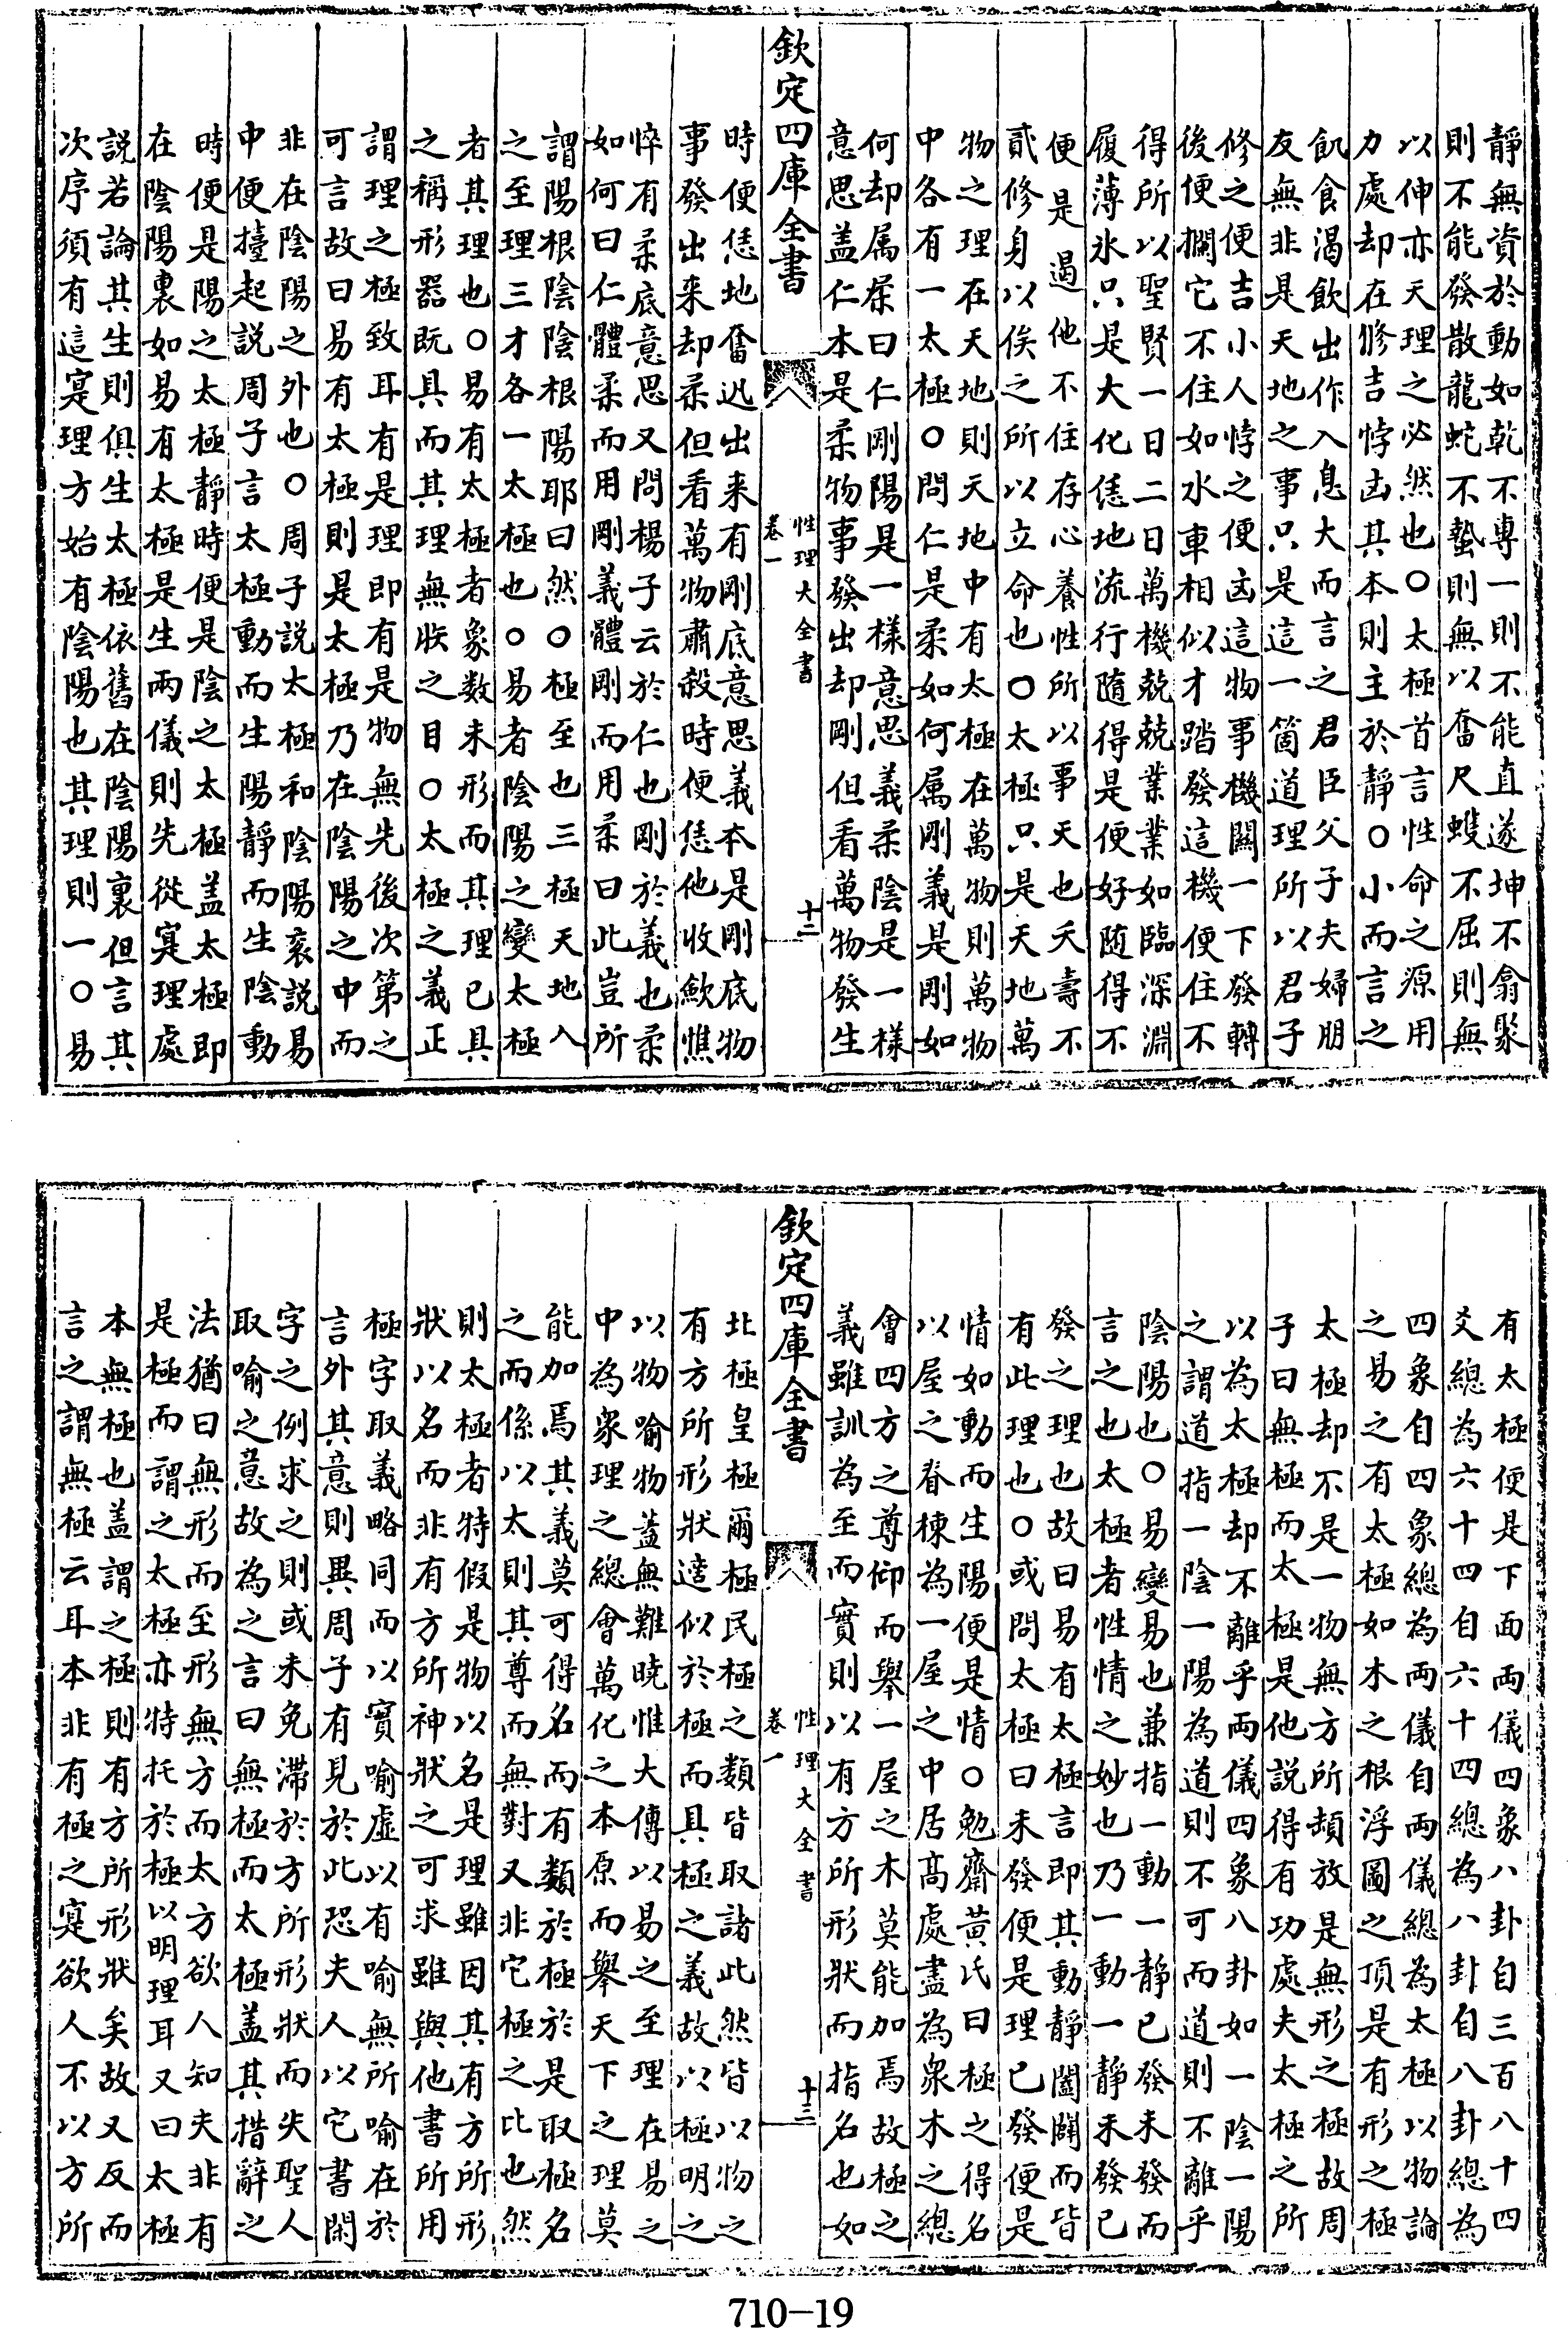 静無資於動如乾不専一則不能直遂坤不翕聚
則不能發散龍蛇不蟄則無以奮尺蠖不屈則無
以伸亦天理之必然也○太極首言性命之源用
力處却在修吉悖凶其本則主於靜○小而言之
飢食渴飲出作入息大而言之君臣父子夫婦朋
友無非是天地之事只是這一箇道理所以君子
修之便吉小人悖之便凶這物事機關一下發轉
後便攔它不住如水車相似才踏發這機便住不
得所以聖賢一日二日萬機兢兢業業如臨深淵
履薄氷只是大化恁地流行隨得是便好隨得不
便是遏他不住存心養性所以事天也夭壽不
貳修身以俟之所以立命也○太極只是天地萬
物之理在天地則天地中有太極在萬物則萬物
中各有一太極○問仁是柔如何属剛義是剛如
何却属柔曰仁剛陽是一様意思義柔陰是一様
意思盖仁本是柔物事發出却剛但看萬物發生
欽定四庫全書
性理大全書
卷一
十二
時便恁地奮迅出来有剛底意思義本是剛底物
事發出来却柔但看萬物肅殺時便恁他收歛憔
悴有柔底意思又問楊子云於仁也剛於義也柔
如何曰仁體柔而用剛義體剛而用柔曰此豈所
謂陽根陰陰根陽耶曰然○極至也三極天地人
之至理三才各一太極也○易者陰陽之變太極
者其理也○易有太極者象数未形而其理已具
之稱形器既具而其理無朕之目○太極之義正
謂理之極致耳有是理即有是物無先後次第之
可言故曰易有太極則是太極乃在陰陽之中而
非在陰陽之外也○周子説太極和陰陽衮説易
中便擡起説周子言太極動而生陽靜而生陰動
時便是陽之太極靜時便是陰之太極盖太極即
在陰陽裏如易有太極是生兩儀則先從寔理處
説若論其生則俱生太極依舊在陰陽裏但言其
次序須有這寔理方始有陰陽也其理則一○易
有太極便是下面兩儀四象八卦自三百八十四
爻總為六十四自六十四總為八卦自八卦總為
四象自四象總為兩儀自兩儀總為太極以物論
之易之有太極如木之根浮圖之頂是有形之極
太極却不是一物無方所頓放是無形之極故周
子曰無極而太極是他説得有功處夫太極之所
以為太極却不離乎兩儀四象八卦如一陰一陽
之謂道指一陰一陽為道則不可而道則不離乎
陰陽也○易變易也兼指一動一靜已發未發而
言之也太極者性情之妙也乃一動一靜未發已
發之理也故曰易有太極言即其動靜闔闢而皆
有此理也○或問太極曰未發便是理已發便是
情如動而生陽便是情○勉齋黄氏曰極之得名
以屋之脊棟為一屋之中居髙處盡為衆木之總
會四方之尊仰而舉一屋之木莫能加焉故極之
義雖訓為至而實則以有方所形狀而指名也如
欽定四庫全書
性理大全書
卷一
十三
北極皇極爾極民極之類皆取諸此然皆以物之
有方所形狀適似於極而具極之義故以極明之
以物喻物盖無難曉惟大傳以易之至理在易之
中為衆理之總會萬化之本原而舉天下之理莫
能加焉其義莫可得名而有類於極於是取極名
之而係以太則其尊而無對又非它極之比也然
則太極者特假是物以名是理雖因其有方所形
狀以名而非有方所神狀之可求雖與他書所用
極字取義略同而以實喻虚以有喻無所喻在於
言外其意則異周子有見於此恐夫人以它書閑
字之例求之則或未免滯於方所形狀而失聖人
取喻之意故為之言曰無極而太極盖其措辭之
法猶曰無形而至形無方而太方欲人知夫非有
是極而謂之太極亦特托於極以明理耳又曰太極
本無極也盖謂之極則有方所形狀矣故又反而
言之謂無極云耳本非有極之寔欲人不以方所
710-19